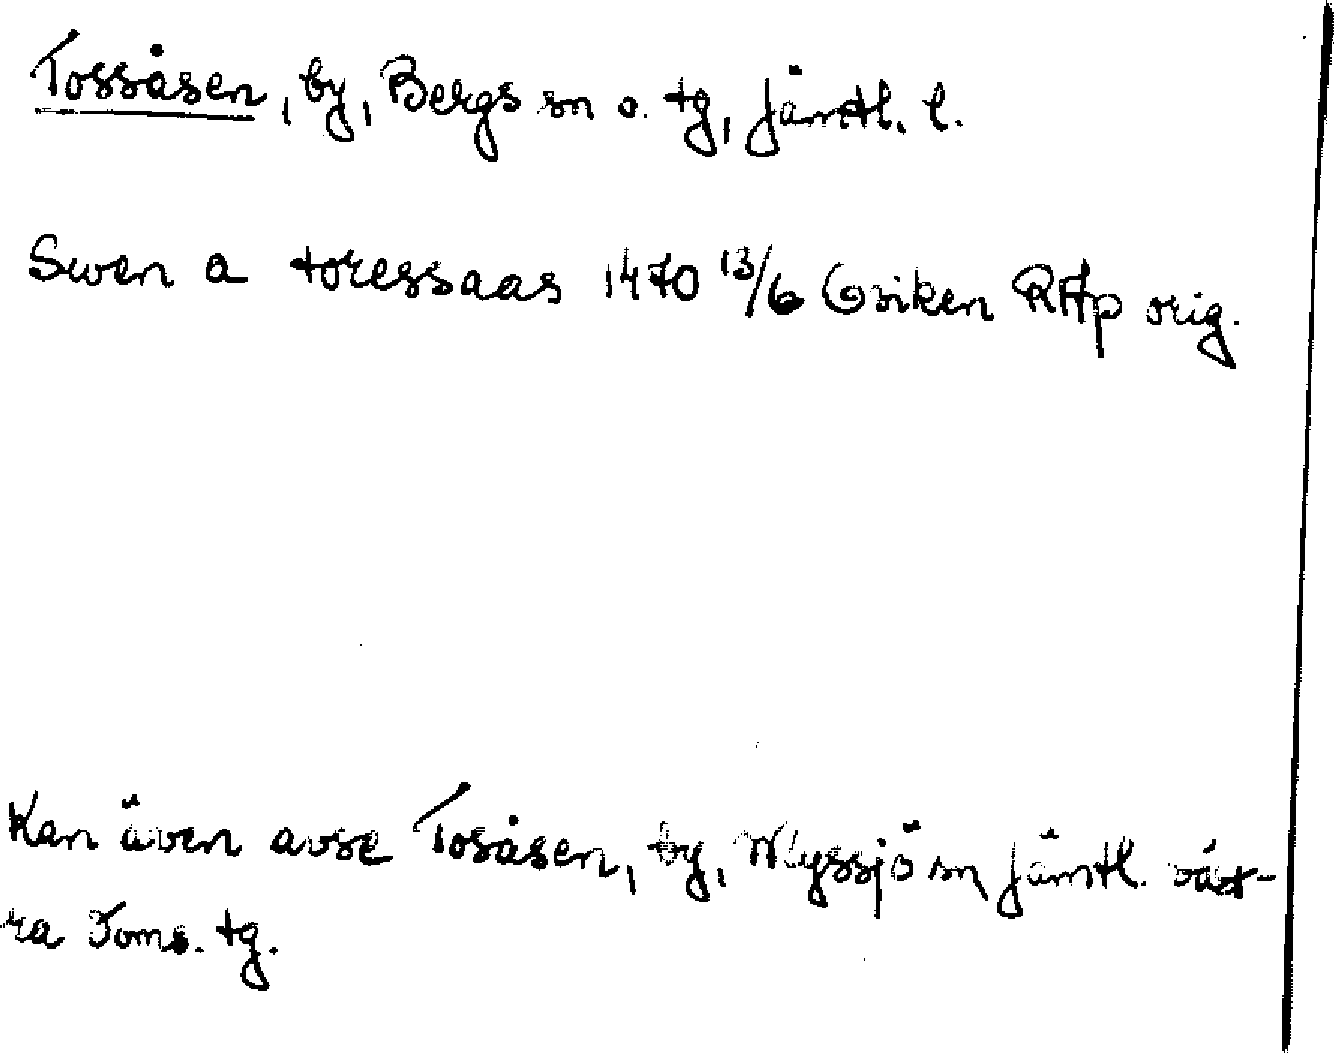 Tossåsen, by, Bergs sn o. tg, Jämtl. l.
Swen a toressaas 1470 13/6 Oviken RAp orig.
Kan även avse Tosåsen, by, Myssjö sn, Jämtl. väst-
ra Toms. tg.